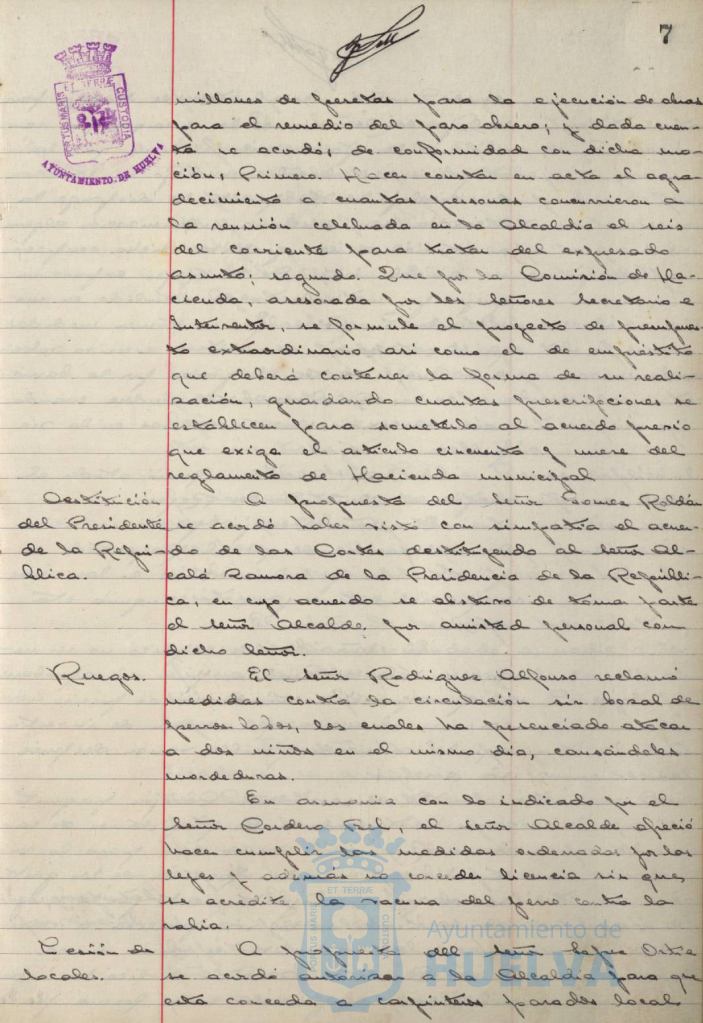 7
PORTUS MARIS ET TERRÆ CUSTODIA
AYUNTAMIENTO DE HUELVA
millones de pesetas para la ejecución de obras
para el remedio del paro obrero; y dada cuen-
ta se acordó, de conformidad con dicha mo-
ción, Primero. Hacer constar en acta el agra-
decimiento a cuantas personas concurrieron a
la reunión celebrada en la Alcaldía el seis
del corriente para tratar del expresado
asunto; segundo. Que por la Comisión de Ha-
cienda, asesorada por los señores Secretario e
Interventor, se formule el proyecto de presupues-
to extraordinario así como el de empréstito
que deberá contener la forma de su reali-
zación, guardando cuantas prescripciones se
establecen para someterlo al acuerdo previo
que exige el artículo cincuenta y nueve del
reglamento de Hacienda municipal
Destitución
del Presidente
de la Repú-
blica.
A propuesta del Señor Gomez Roldán
se acordó haber visto con simpatía el acuer-
do de las Cortes destituyendo al señor Al-
calá Zamora de la Presidencia de la Repúbli-
ca, en cuyo acuerdo se abstuvo de tomar parte
el señor Alcalde, por amistad personal con
dicho Señor.
Ruegos.
El Señor Rodriguez Alfonso reclamó
medidas contra la circulación sin bozal de
perros, los cuales ha presenciado atacar
a dos niños en el mismo día, causándoles
mordeduras.
En armonía con lo indicado por el
Señor Cordero, el señor Alcalde ofreció
hacer cumplir las medidas ordenadas por las
leyes y además no conceder licencia sin que
se acredite la vacuna del perro contra la
rabia.
Cesión de
locales.
A propuesta del Señor Ortiz
se acordó autorizar a la Alcaldía para que
esta conceda a carpinteros parados local
PORTUS MARIS ET TERRÆ CUSTODIA
Ayuntamiento de
HUELVA